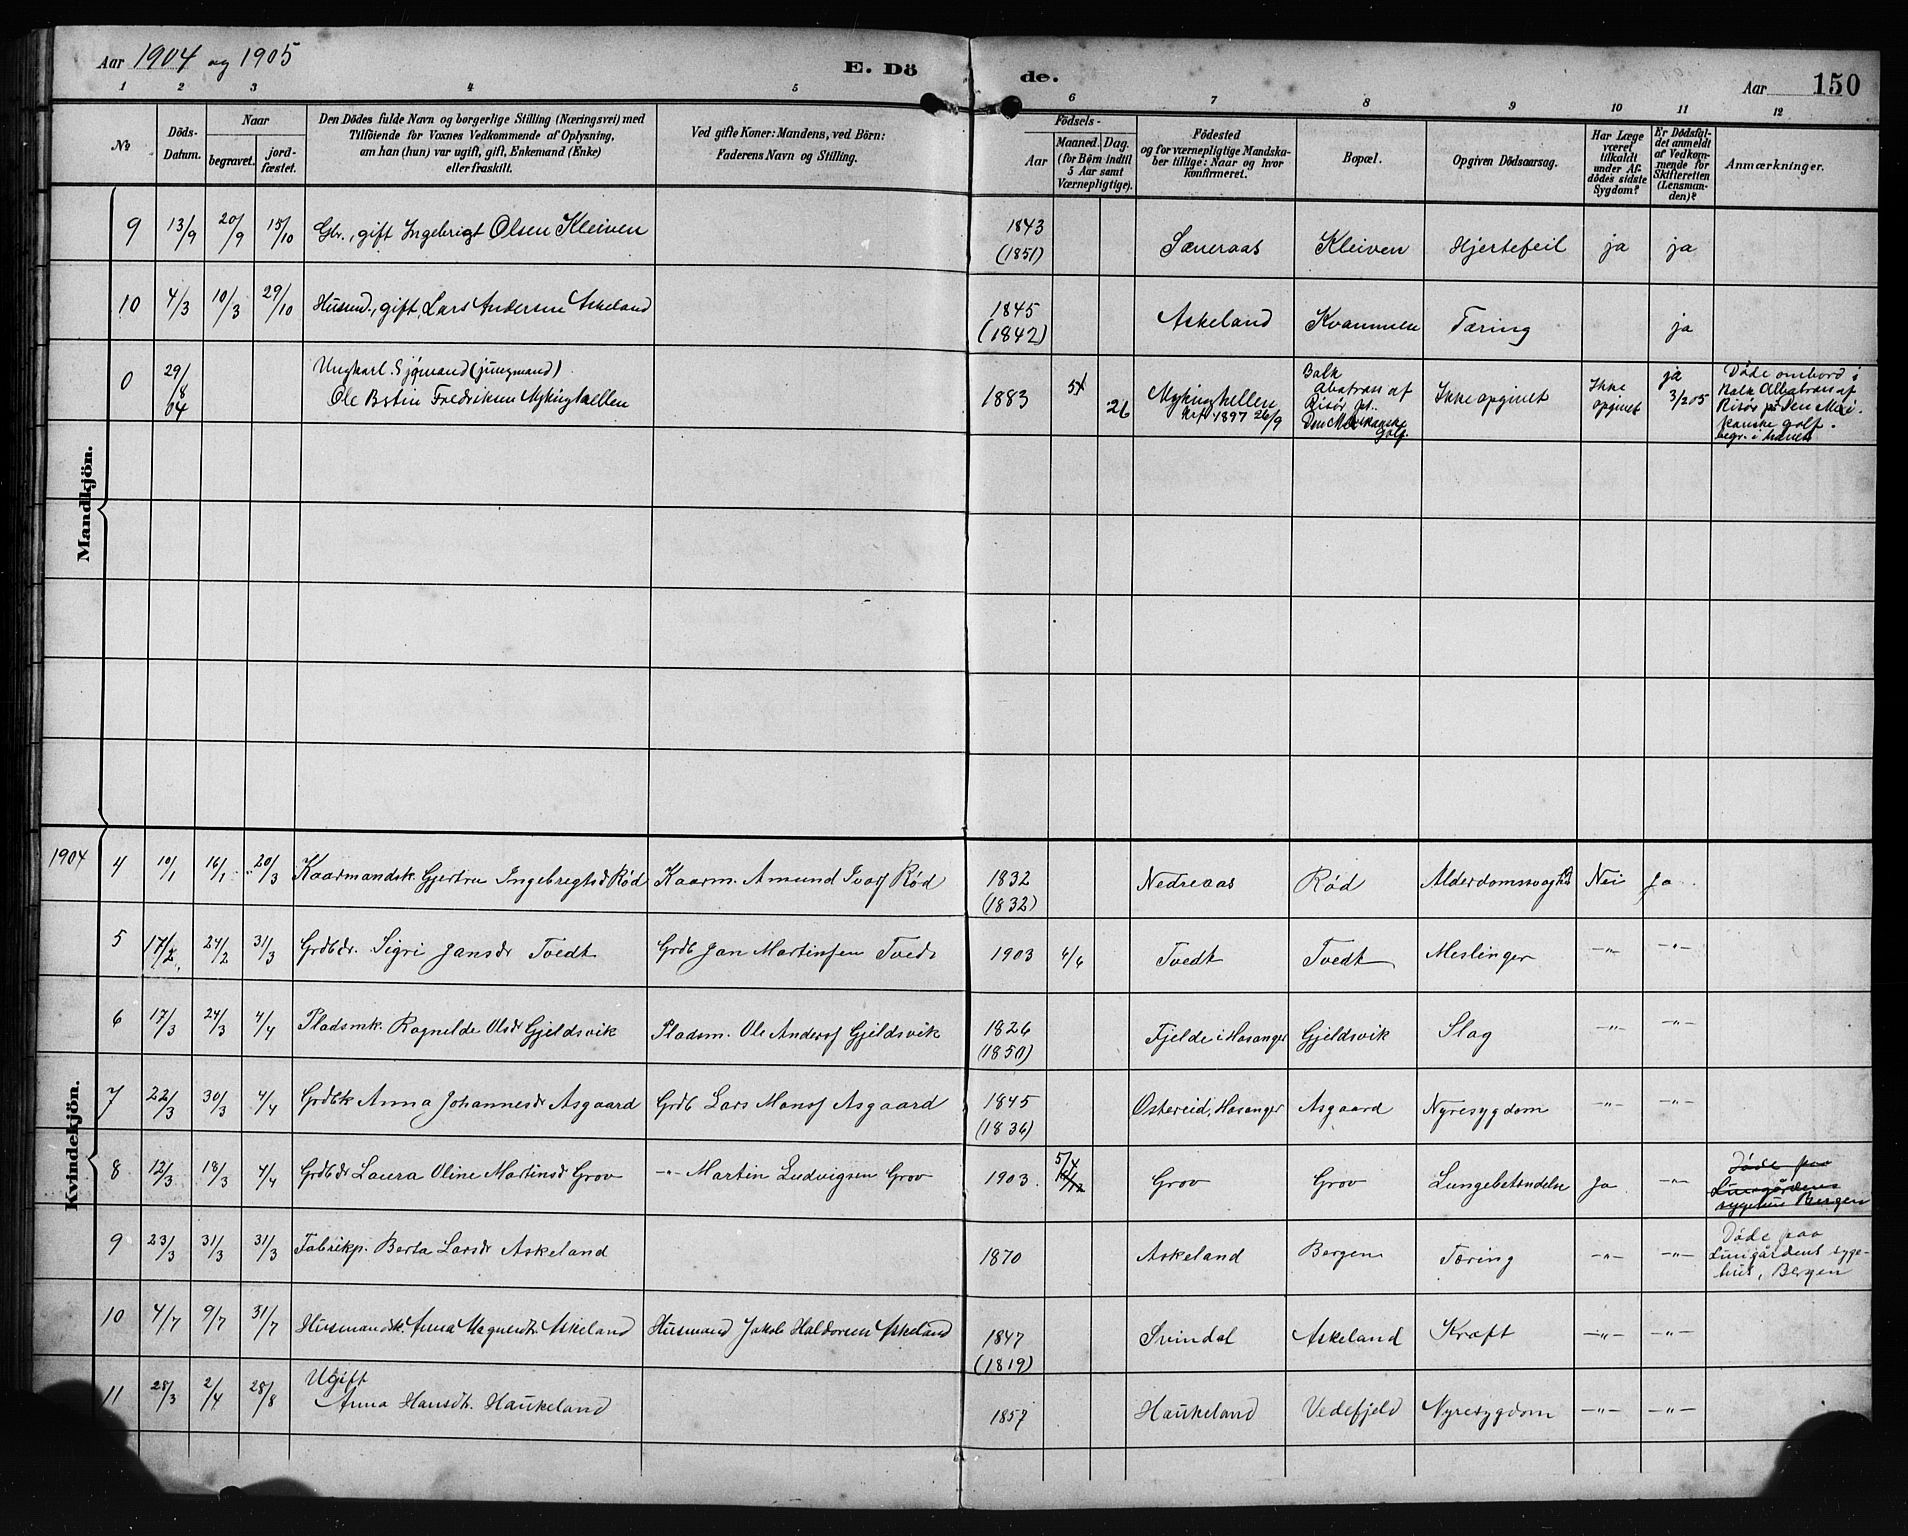 Aar 1904 og 1905
E. Dö
de.
Aar
150
1 2 3 4 5 6 7 8 9 10 11 12
№
Döds-
Datum.
Naar
begravet.
jord-
fæstet.
Den Dödes fulde Navn og borgerlige Stilling (Næringsvei) med
Tilföiende for Voxnes Vedkommende af Oplysning,
om han (hun) var ugift, gift, Enkemand (Enke)
eller fraskilt.
Ved gifte Koner: Mandens, ved Börn:
Faderens Navn og Stilling.
Födsels-
Aar
Maaned. Dag.
(for Börn indtil
5 Aar samt
Værnepligtige).
Födested
og for værnepligtige Mandska-
ber tillige: Naar og hvor
konfirmeret.
Bopæl.
Opgiven Dödsaarsag.
Har Læge
været
tilkaldt
under Af-
dödes sidste
Sygdom?
Er Dödsfal-
det anmeldt
af Vedkom-
mende for
Skifteretten
(Lensman-
den)?
Anmærkninger.
Mandkjön.
9 13/9 20/9 15/10 Gbr., gift Ingebrigt Olsen Kleiven 1843 (1851) Sæneraas Kleiven Hjertefeil ja ja
10 4/3 10/3 29/10 Husmd., gift, Lars Andersen Askeland 1845 (1842) Askeland Kvammen Tæring ja
0 29/8 04 Ungkarl. Sjømand (jungmand)
Ole Fredriksen Mykingkellen 1883 26 Mykingkellen
Krf. 1897 26/9
Bark
Albatrass af
Risør
Den Mexikanske
Golf.
Ikke opgivet
Ikke
opgivet
ja
3/2 05
Døde ombord i
Bark Albatrass af
Risør paa Den Mexi-
kanske golf.
begr. i havet
Kvindekjön.
1904 4 10/1 16/1 20/3 Kaarmandsk. Gjertru Ingebregtsd Rød Kaarm. Amund Ivars Rød 1832 (1832) Nedreaas Rød Alderdomssvaghed Nei Ja
5 17/2 24/2 31/3 Grdbdr. Sigri Jansdr Tvedt Grdb Jan Martinsen Tvedt 1903 6/6 Tvedt Tvedt Meslinger -"- -"-
6 17/3 24/3 4/4 Pladsmk. Ragnelde Olsdr Gjeldsvik Pladsm. Ole Anders Gjeldsvik 1826 (1850) Fjelde i Hosanger Gjeldsvik Slag -"- -"-
7 22/3 30/3 4/4 Grdbk Anna Johannesdr Asgaard Grdb Lars Mons Asgaard 1845 (1836) Ostereid, Hosanger Asgaard Nyresygdom -"- -"-
8 12/3 18/3 4/4 Grdbdr Laura Oline Martinsd Grov -"- Martin Ludvigsen Grov 1903 5/4 Grov Grov Lungebetændelse Ja -"- Døde paa
Lungårdens
sygehus Bergen
9 23/3 31/3 31/3 Fabrikp. Berta Larsdr Askeland 1870 Askeland Bergen Tæring -"- -"- Døde paa
Lungårdens syge-
hus, Bergen
10 4/7 9/7 31/7 Husmandsk. Anna Magnesdt. Askeland Husmand Jakob Haldorsen Askeland 1847 (1819) Svindal Askeland Kræft -"- -"-
11 28/3 2/4 28/8 Ugift
Anna Hansdt. Haukeland 1857 Haukeland Vedefjeld Nyresygdom -"- -"-